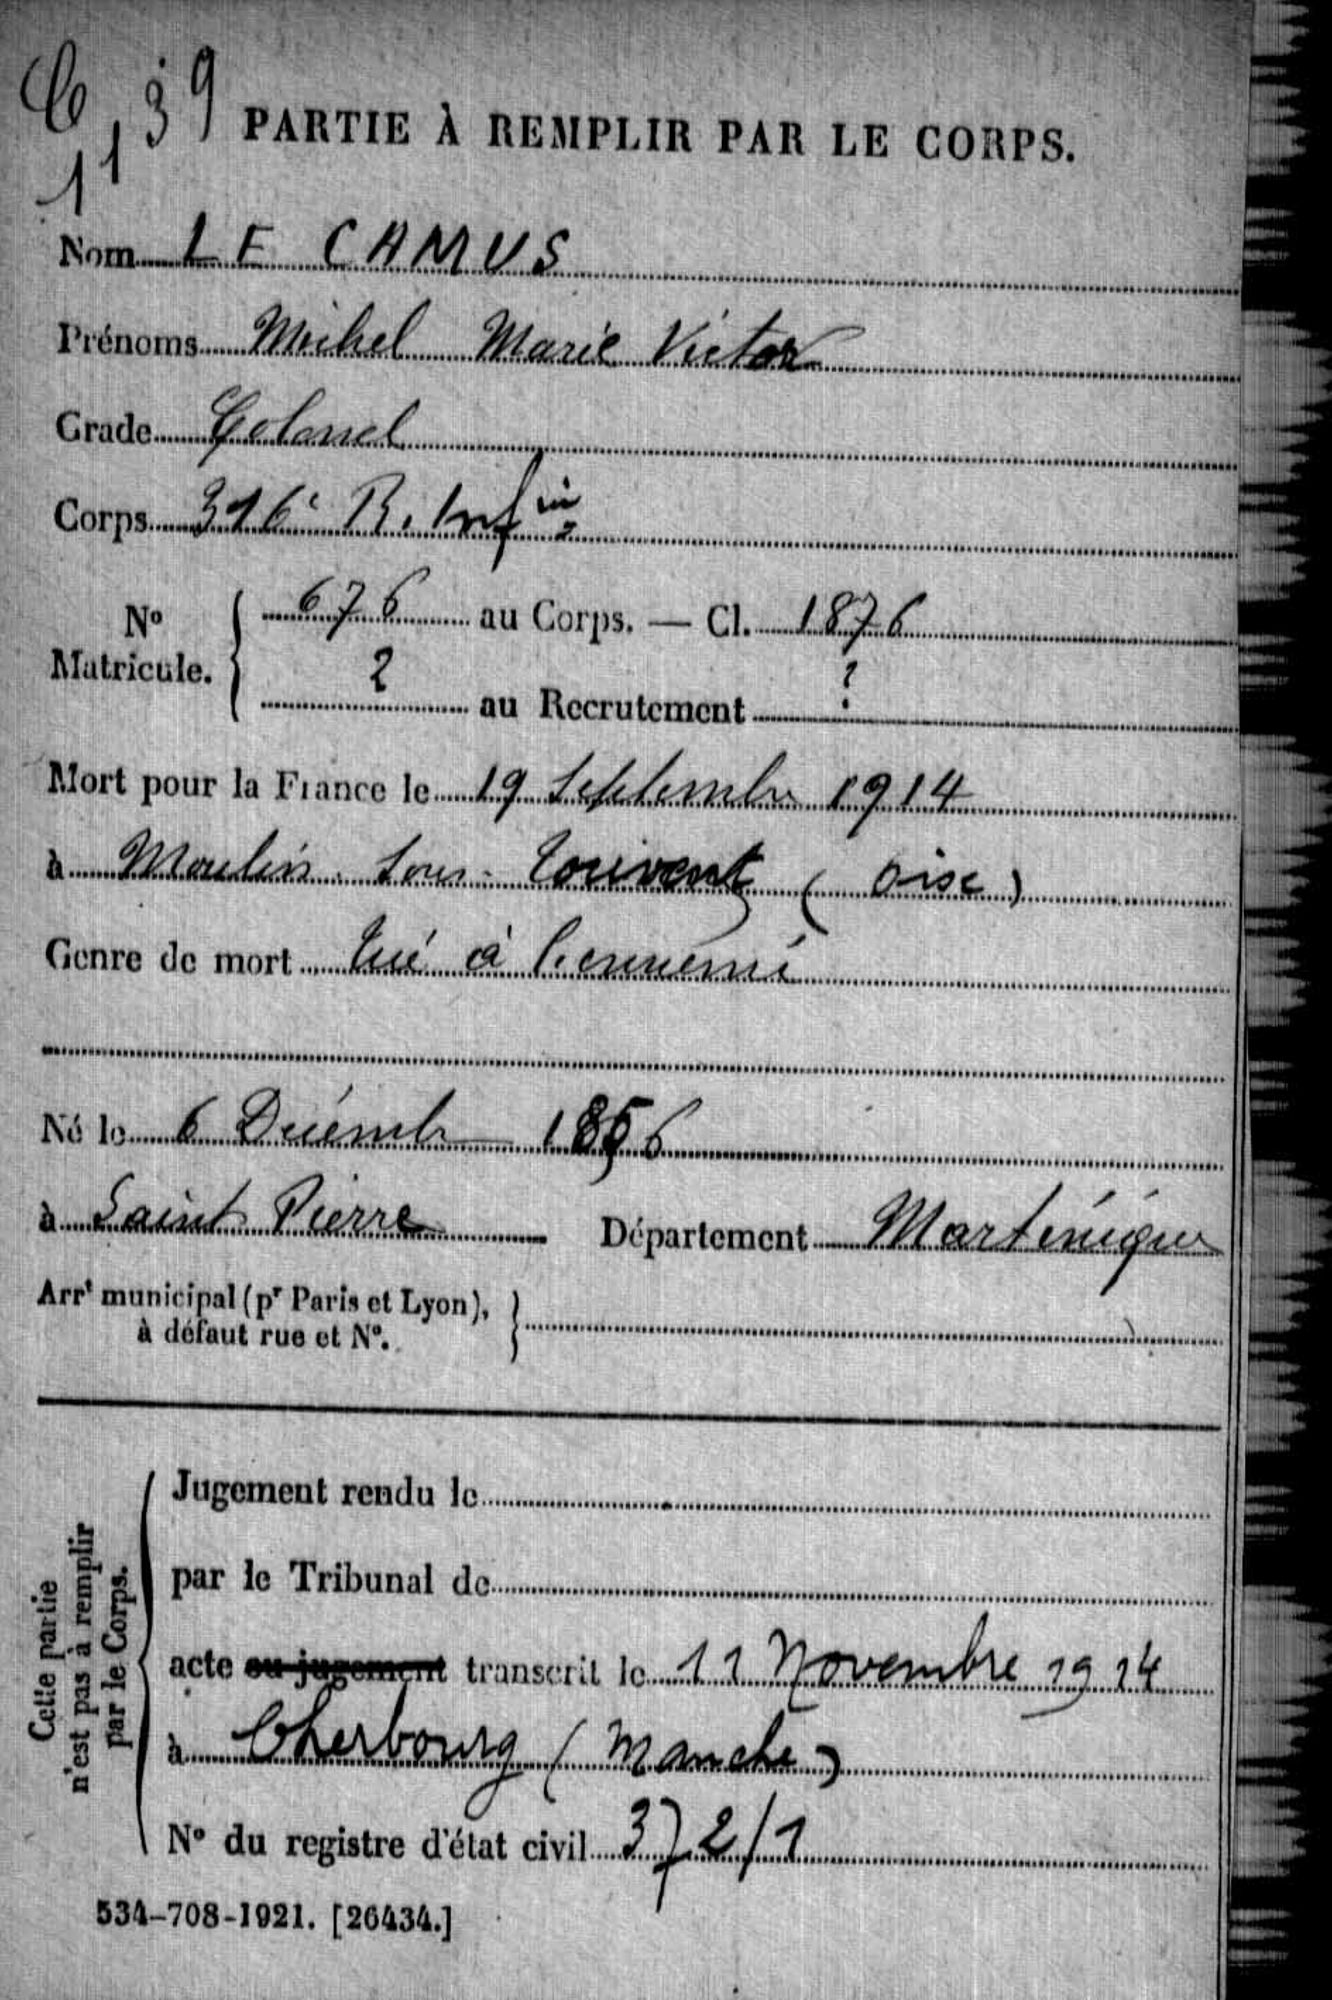 C 39
11
PARTIE À REMPLIR PAR LE CORPS.
Nom LE CAMUS
Prénoms Michel Marie Victor
Grade Colonel
Corps 316e R. Infie
No Matricule. { 676 au Corps. — Cl. 1876
? au Recrutement ?
Mort pour la France le 19 Septembre 1914
à Moulin-sous-Touvent (Oise)
Genre de mort tué à l'ennemi
Né le 6 Décembre 1856
à Saint Pierre Département Martinique
Arrt municipal (pr Paris et Lyon), à défaut rue et No. }
Cette partie n'est pas à remplir par le Corps. {
Jugement rendu le
par le Tribunal de
acte ou jugement transcrit le 11 Novembre 1914
à Cherbourg (Manche)
No du registre d'état civil 372/1
534-708-1921. [26434.]